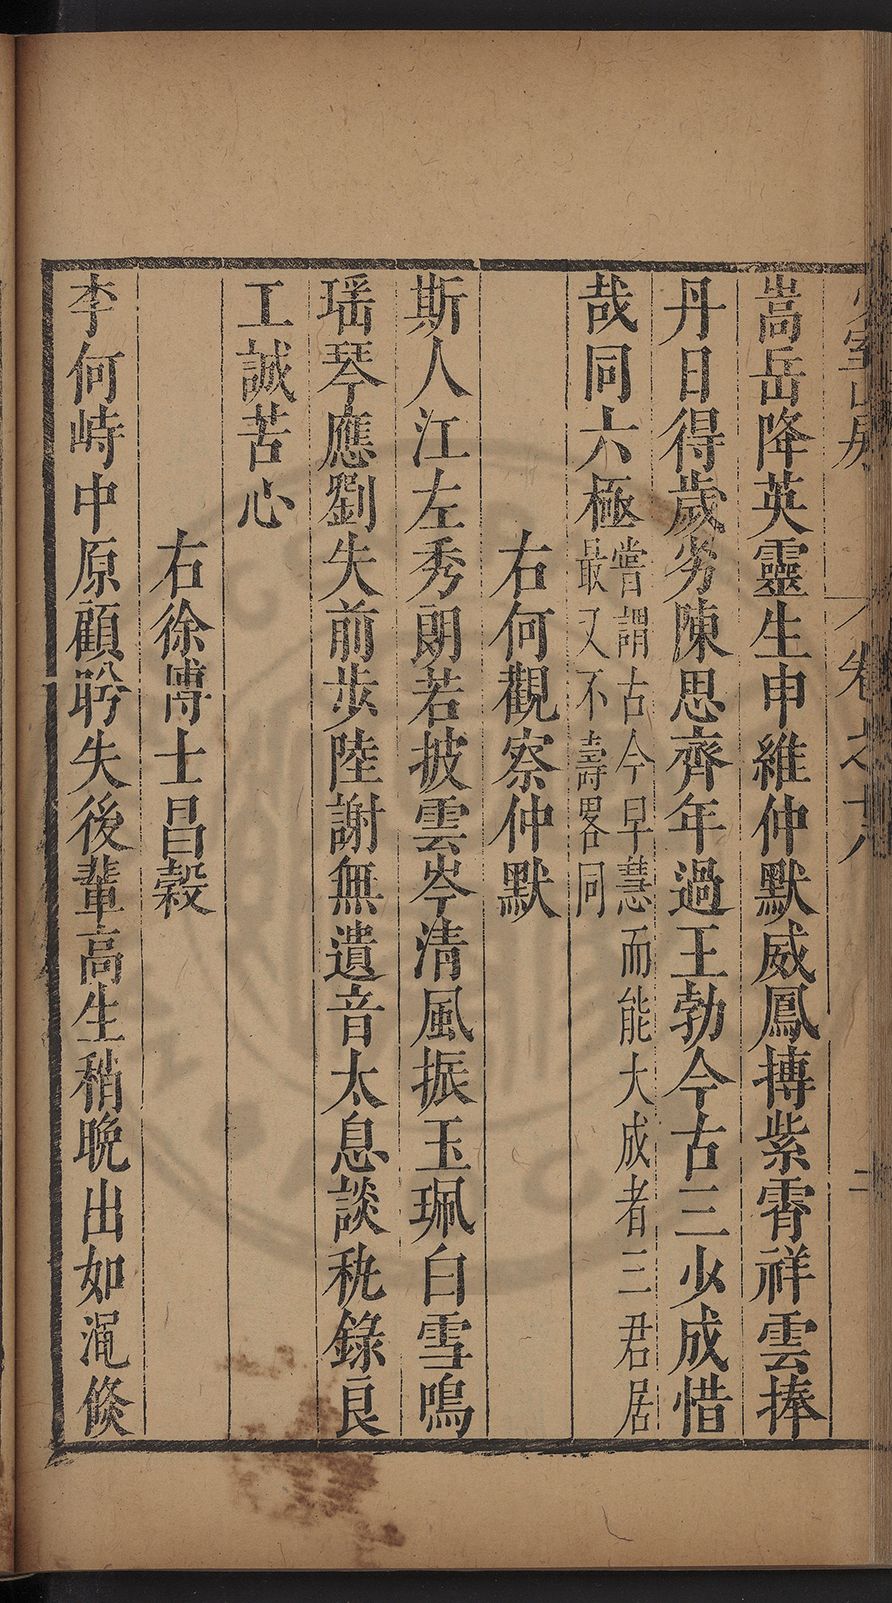 少室山房 卷之十八 二
嵩岳降英靈生申維仲默威鳳摶紫霄祥雲捧
丹日得歲劣陳思齊年過王勃今古三少成惜
哉同六極嘗謂古今早慧而能大成者三君居
最又不壽畧同
右何觀察仲默
斯人江左秀朗若披雲岑清風振玉珮白雪鳴
瑶琴應劉失前步陸謝無遺音太息談秇錄良
工誠苦心
右徐博士昌榖
李何峙中原顧盻失後輩高生稍晚出如澠倐